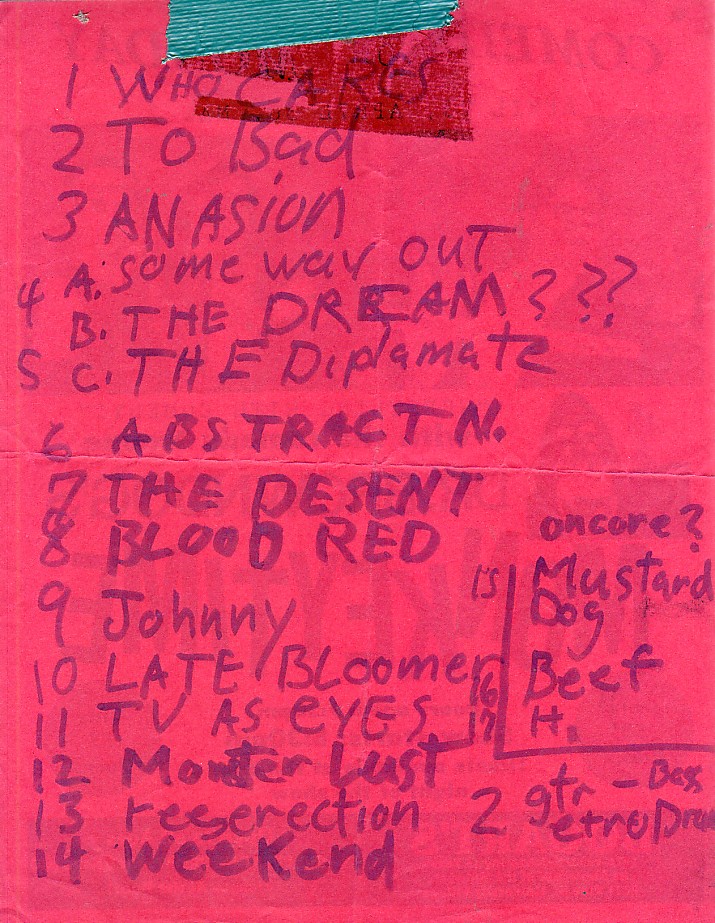 1 WHO CARES
2 TO Bad
3 ANASION
4 A. some way OUT
B. THE DREAM ? ??
5 C. THE Diplamate
6 ABSTRACT N.
7 THE DESENT
8 BLOOD RED
9 Johnny
10 LATE Bloomer
11 TV AS eYES
12 Monster Lust
13 reserection
14 weeKend
oncore?
15 Mustard
Dog
16 Beef
17 H.
2 gtr - Bass